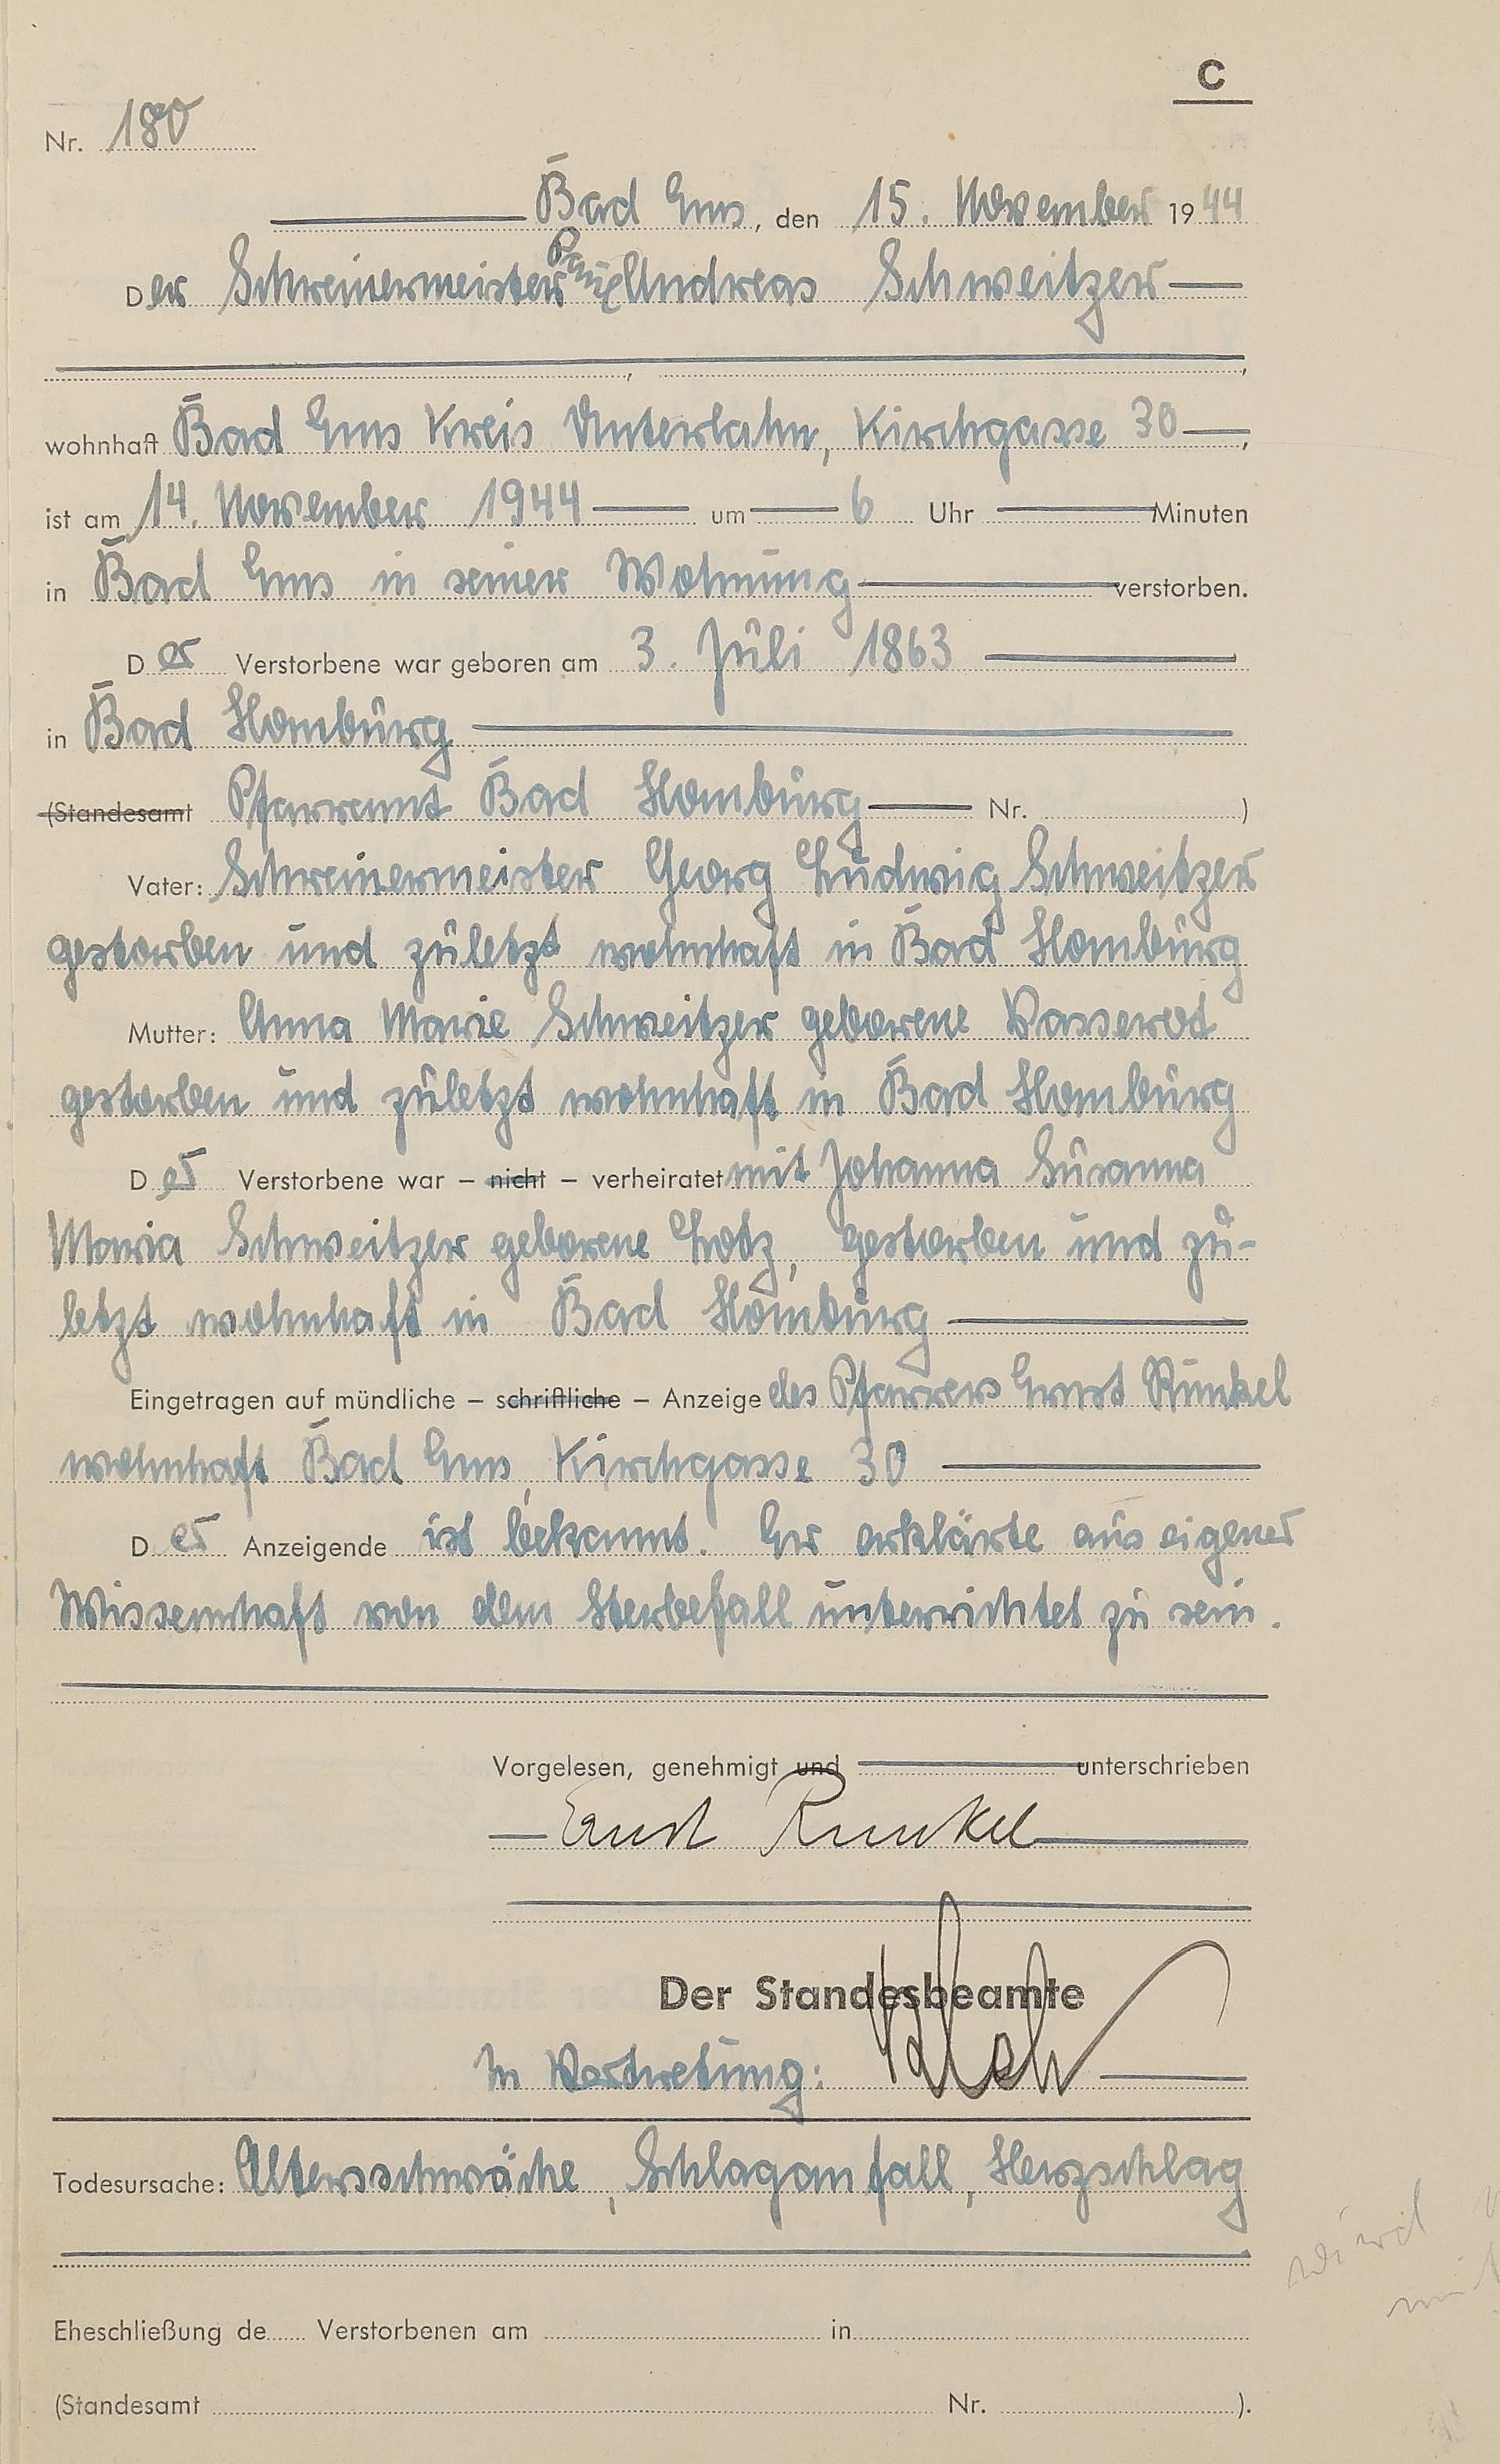 C
Nr. 180
Bad Ems, den 15. November 1944
Der Schreinermeister Paul Andreas Schweitzer
wohnhaft Bad Ems Kreis Unterlahn, Kirchgasse 30,
ist am 14. November 1944 um 6 Uhr Minuten
in Bad Ems in seiner Wohnung verstorben.
Der Verstorbene war geboren am 3. Juli 1863
in Bad Homburg
(Standesamt Pfarramt Bad Homburg Nr. )
Vater: Schreinermeister Georg Ludwig Schweitzer
gestorben und zuletzt wohnhaft in Bad Homburg
Mutter: Anna Marie Schweitzer geborene Wasserot
gestorben und zuletzt wohnhaft in Bad Homburg
Der Verstorbene war – nicht – verheiratet mit Johanna Susanna
Maria Schweitzer geborene Lotz, gestorben und zu-
letzt wohnhaft in Bad Homburg
Eingetragen auf mündliche – schriftliche – Anzeige des Pfarrers Ernst Runkel
wohnhaft Bad Ems, Kirchgasse 30
Der Anzeigende ist bekannt. Er erklärte aus eigener
Wissenschaft von dem Sterbefall unterrichtet zu sein.
Vorgelesen, genehmigt und unterschrieben
Ernst Runkel
Der Standesbeamte
In Vertretung:
Todesursache: Altersschwäche, Schlaganfall, Herzschlag
Eheschließung de Verstorbenen am in
(Standesamt Nr. ).